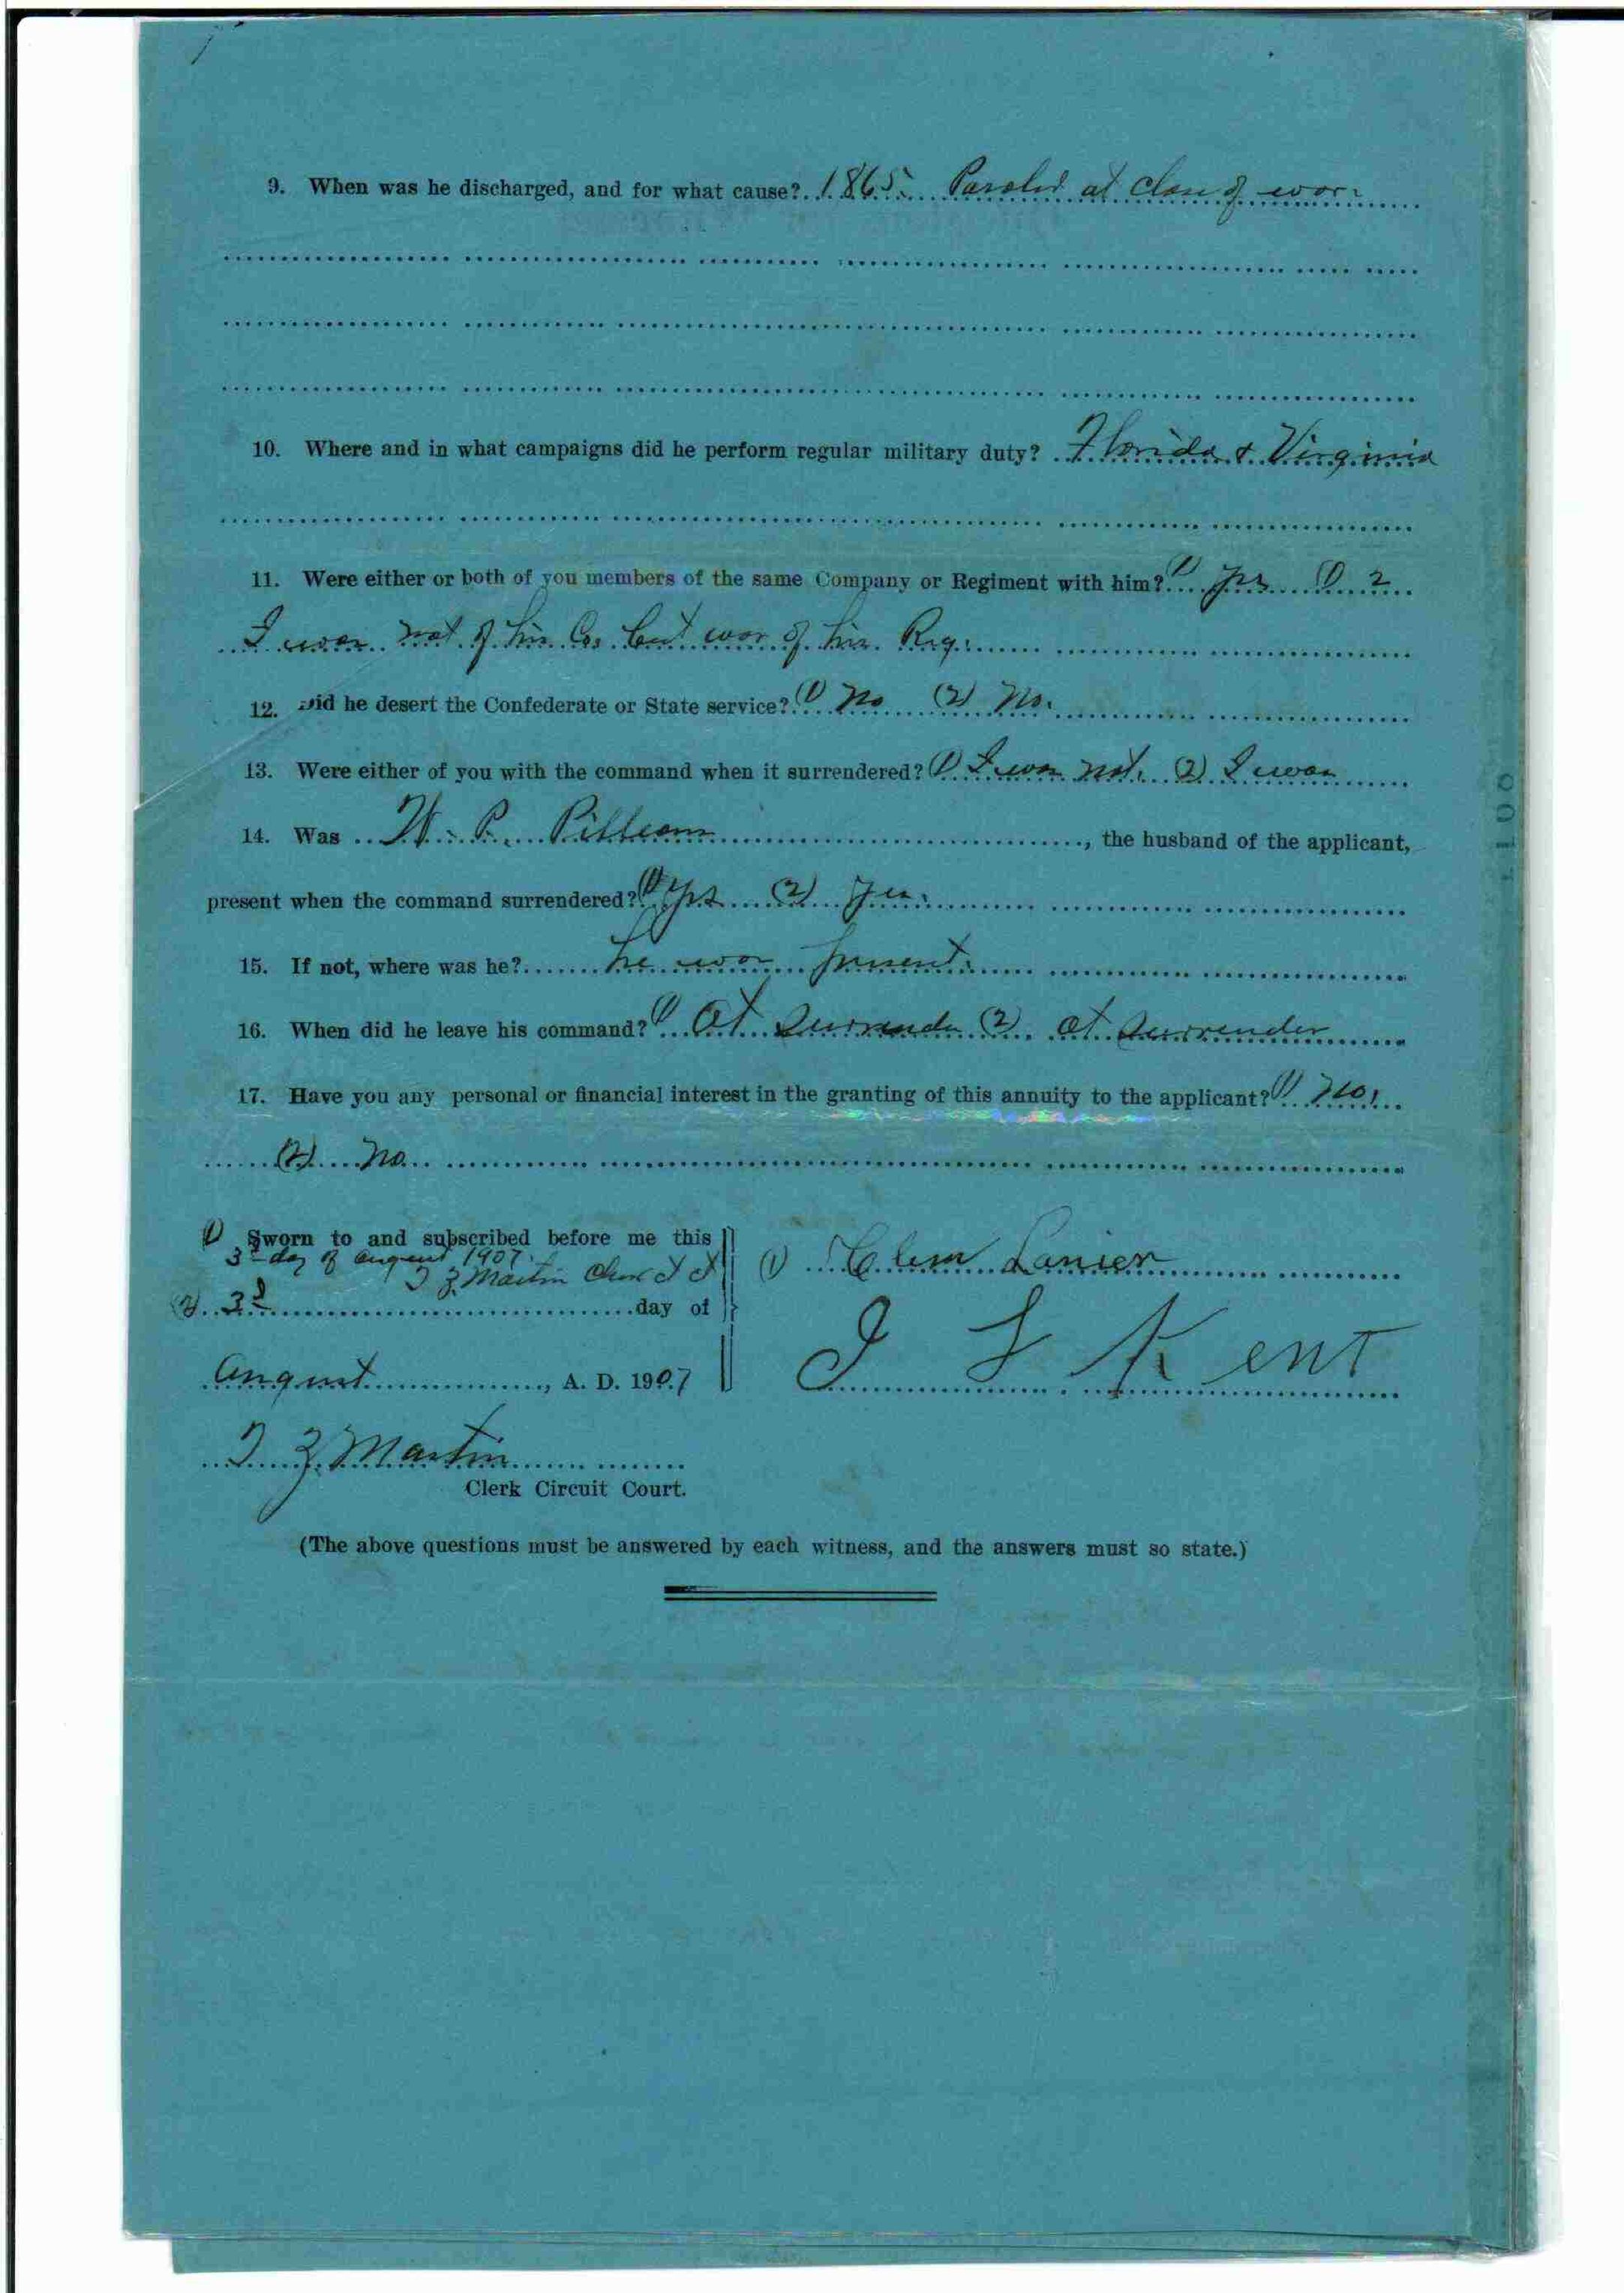 9. When was he discharged, and for what cause? 1865. Paroled at close of war.
10. Where and in what campaigns did he perform regular military duty? Florida & Virginia
11. Were either or both of you members of the same Company or Regiment with him? (1) yes 2
I was not of his Co. but was of his Reg.
12. Did he desert the Confederate or State service? (1) No (2) No.
13. Were either of you with the command when it surrendered? (1) I was not. (2) I was
14. Was W. P. , the husband of the applicant,
present when the command surrendered? (1) Yes (2) Yes.
15. If not, where was he? he was present.
16. When did he leave his command? (1) At Surrender (2) At Surrender
17. Have you any personal or financial interest in the granting of this annuity to the applicant? (1) No.
(2) No
(1) Sworn to and subscribed before me this
3d day of August 1907.
Martin Clerk
(1) Clem Lanier
(2) 3d day of
August, A. D. 1907
J L Kent
Martin
Clerk Circuit Court.
(The above questions must be answered by each witness, and the answers must so state.)